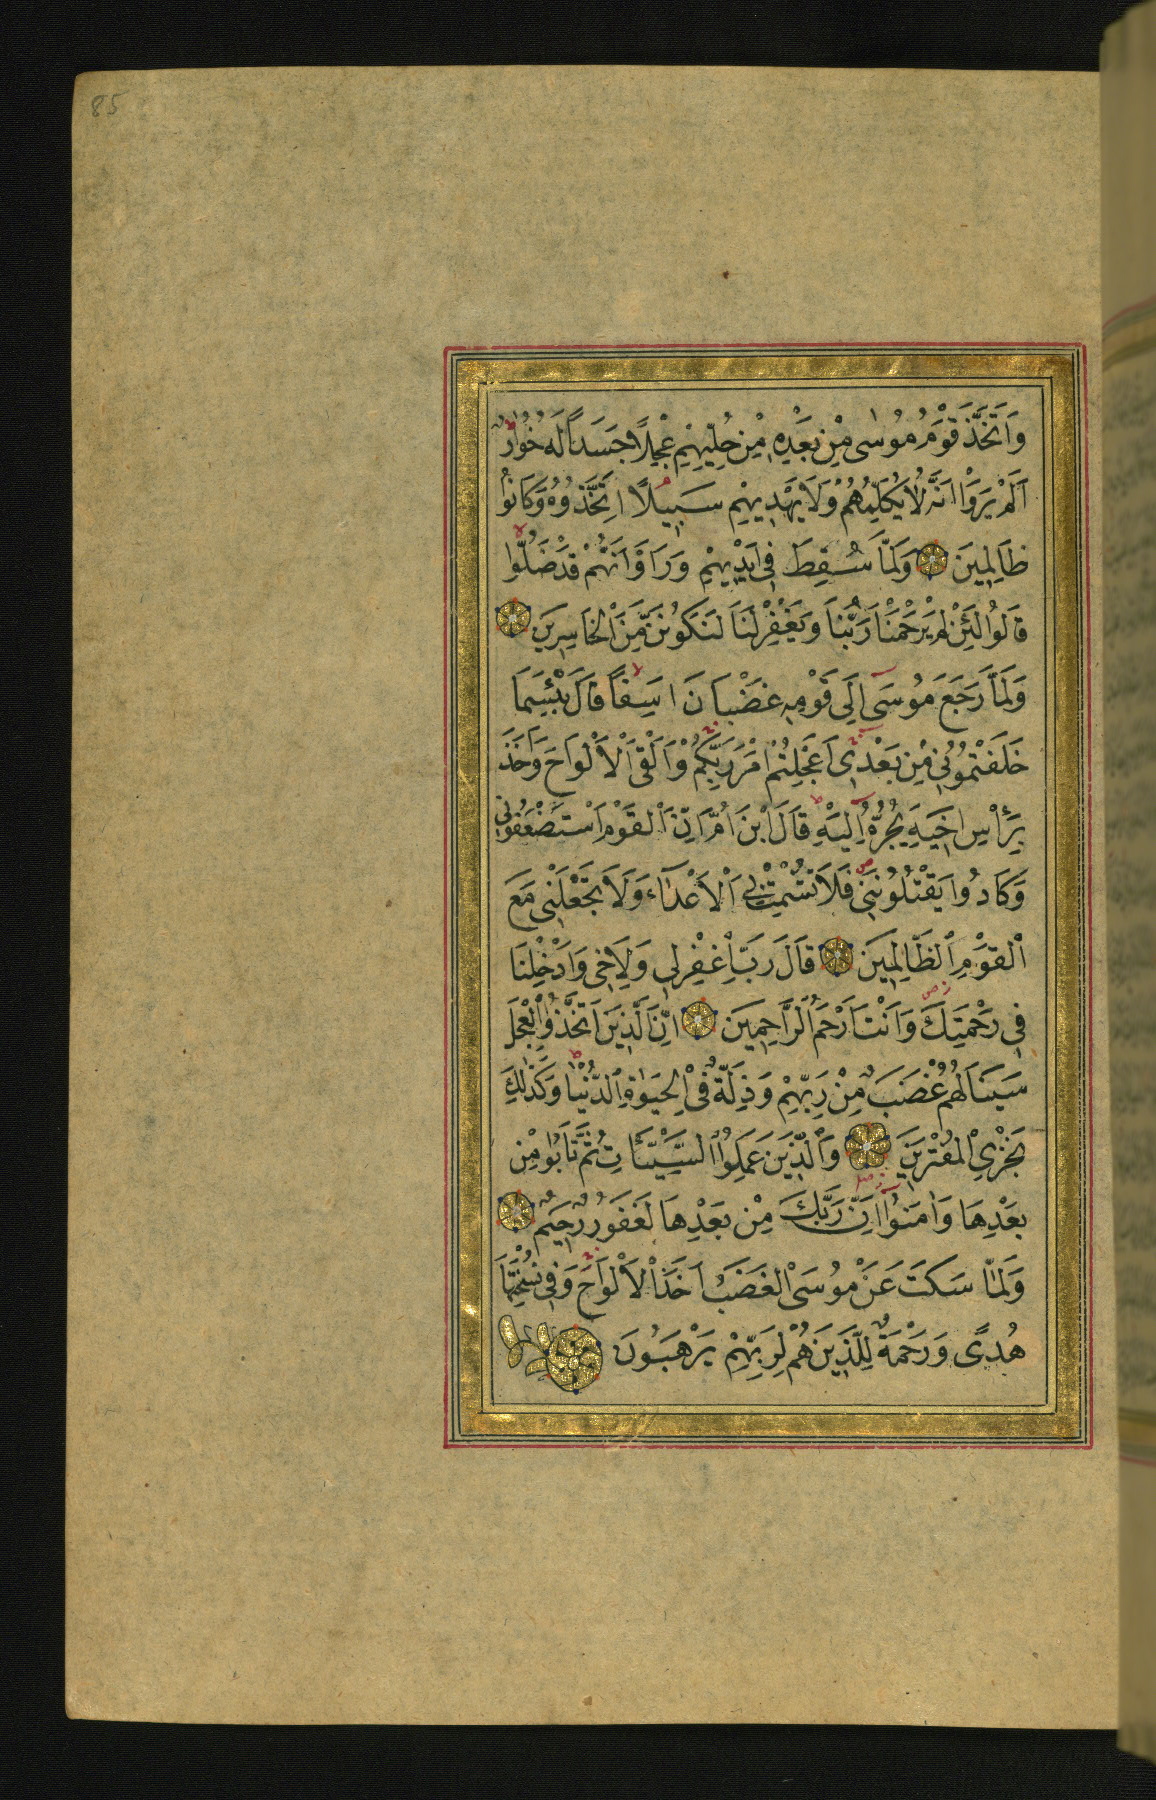 85
وَاتَّخَذَ قَوْمُ مُوسٰى مِنْ بَعْدِهِ مِنْ حُلِيِّهِمْ عِجْلًا جَسَدًا لَهُ خُوَارٌ
اَلَمْ يَرَوْا اَنَّهُ لَا يُكَلِّمُهُمْ وَلَا يَهْدِيهِمْ سَبِيلًا اِتَّخَذُوهُ وَكَانُوا
ظَالِمِينَ وَلَمَّا سُقِطَ فِى اَيْدِيهِمْ وَرَاَوْا اَنَّهُمْ قَدْ ضَلُّوا
قَالُوا لَئِنْ لَمْ يَرْحَمْنَا رَبُّنَا وَيَغْفِرْ لَنَا لَنَكُونَنَّ مِنَ الْخَاسِرِينَ
وَلَمَّا رَجَعَ مُوسَى اِلَى قَوْمِهِ غَضْبَانَ اَسِفًا قَالَ بِئْسَمَا
خَلَفْتُمُونِى مِنْ بَعْدِى اَعَجِلْتُمْ اَمْرَ رَبِّكُمْ وَاَلْقَى الْاَلْوَاحَ وَاَخَذَ
بِرَأْسِ اَخِيهِ يَجُرُّهُ اِلَيْهِ قَالَ ابْنَ اُمَّ اِنَّ الْقَوْمَ اسْتَضْعَفُونِى
وَكَادُوا يَقْتُلُونَنِى فَلَا تُشْمِتْ بِىَ الْاَعْدَاءَ وَلَا تَجْعَلْنِى مَعَ
الْقَوْمِ الظَّالِمِينَ قَالَ رَبِّ اغْفِرْ لِى وَلِاَخِى وَاَدْخِلْنَا
فِى رَحْمَتِكَ وَاَنْتَ اَرْحَمُ الرَّاحِمِينَ اِنَّ الَّذِينَ اتَّخَذُوا الْعِجْلَ
سَيَنَالُهُمْ غَضَبٌ مِنْ رَبِّهِمْ وَذِلَّةٌ فِى الْحَيٰوةِ الدُّنْيَا وَكَذٰلِكَ
نَجْزِى الْمُفْتَرِينَ وَالَّذِينَ عَمِلُوا السَّيِّئَاتِ ثُمَّ تَابُوا مِنْ
بَعْدِهَا وَاٰمَنُوا اِنَّ رَبَّكَ مِنْ بَعْدِهَا لَغَفُورٌ رَحِيمٌ
وَلَمَّا سَكَتَ عَنْ مُوسَى الْغَضَبُ اَخَذَ الْاَلْوَاحَ وَفِى نُسْخَتِهَا
هُدًى وَرَحْمَةٌ لِلَّذِينَ هُمْ لِرَبِّهِمْ يَرْهَبُونَ